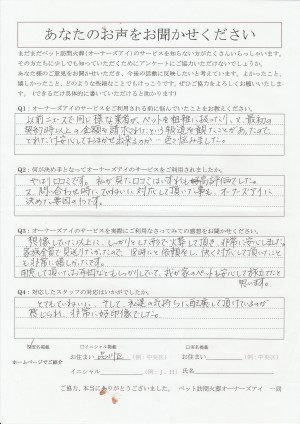 あなたのお声をお聞かせください
まだまだペット訪問火葬(オーナーズアイ)のサービスを知らない方がたくさんいらっしゃいます。
その方たちに少しでも知っていただくためにアンケートにご協力いただけないでしょうか。
あなた様のご意見をお聞かせいただき、今後の活動に反映したいと考えています。よかったこと、
嬉しかったこと、どのような些細なことでもけっこうです。ぜひご協力をよろしくお願いいたします。
(できるだけ具体的に書いていただけると助かります)
Q1:オーナーズアイのサービスをご利用される前に悩んでいたことをお教えください。
以前ニュースで同じ様な業者が、ペットを粗雑に扱ったり、又、最初の
契約時以上の金額を請求されたという報道を観たことがあったので、
どれくらい安心しておまかせ出来るのか 色々悩みました。
Q2:何が決め手となってオーナーズアイのサービスをご利用されましたか。
やはり口コミです。私が見た口コミはいずれも高評価でした。
又、問い合わせ時にていねいに対応して頂いた事も、オーナーズアイに
決めた要因の1つです。
Q3:オーナーズアイのサービスを実際にご利用なさってみての感想をお聞かせください。
想像していた以上に、しっかりとした形で火葬して頂き、非常に安心しました。
家族全員で見送りたかったので、18時にお依頼をし、快く対応して頂いたこと
も非常に嬉しかったです。
思います。
Q4:対応したスタッフの対応はいかがでしたか。
とてもていねいに、そして、私達の気持ちに配慮して頂けているのが
感じられ、非常に好印象でした。
ホームページでご紹介
□イニシャル掲載
お住まい 品川区 (例:中央区)
イニシャル (例:J.H)
お住まい (例:中央区)
氏名
ご協力、本当にありがとうございました。 ペット訪問火葬オーナーズアイ 一同